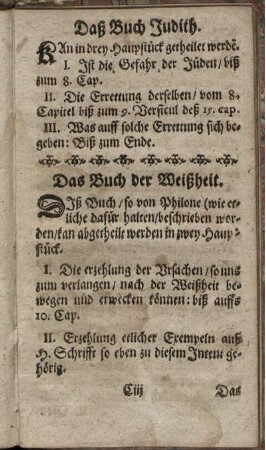 Daß Buch Judith.
KAn in drey Haupstück getheilet werdē.
I. Ist die Gefahr der Jüden/ biß
zum 8. Cap.
II. Die Errettung derselben/ vom 8.
Capitel biß zum 9. Versicul deß 15. Cap.
III. Was auff solche Errettung sich be-
geben: Biß zum Ende.
Das Buch der Weißheit.
DIß Buch/ so von Philone (wie et-
liche dafür halten/ beschrieben wor-
den/ kan abgetheile werden in zwey Haup-
stück.
I. Die erzehlung der Vrsachen/ so uns
zum verlangen/ nach der Weißheit be-
wegen und erwecken können: biß auffs
10. Cap.
II. Erzehlung etlicher Exempeln auß
H. Schrifft so eben zu diesem Intent ge-
hörig.
Ciij Das